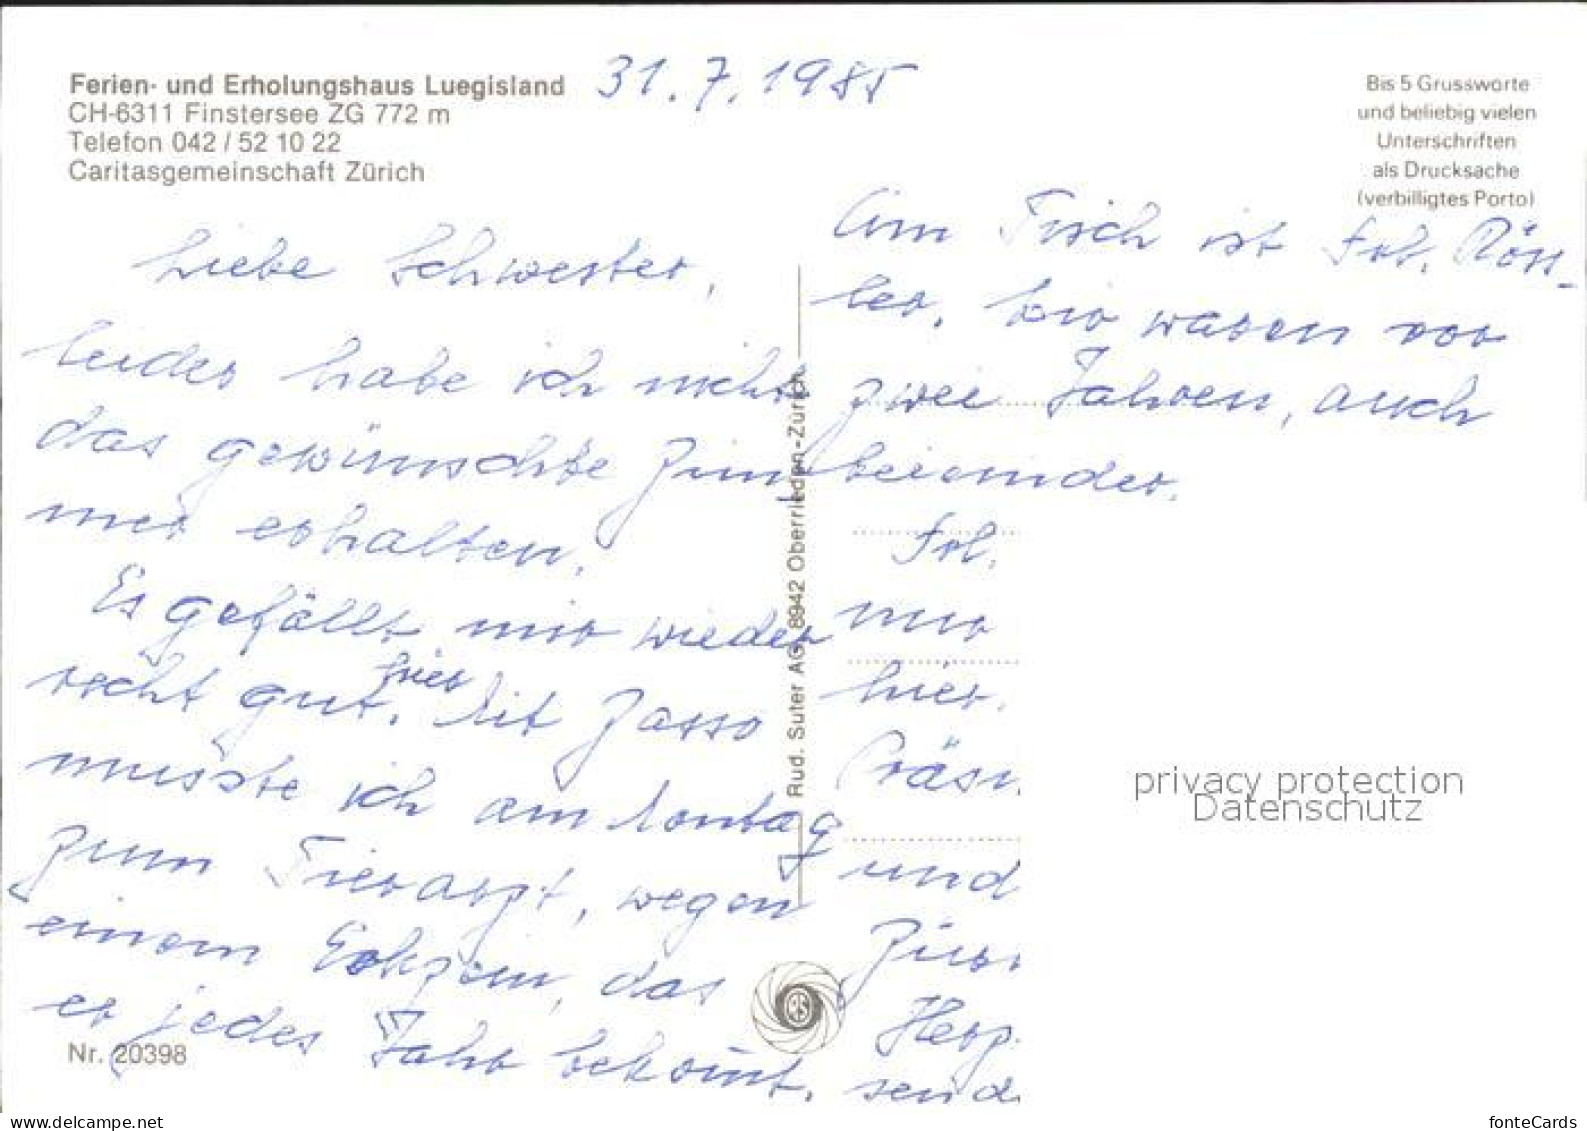 Ferien- und Erholungshaus Luegisland
CH-6311 Finstersee ZG 772 m
Telefon 042 / 52 10 22
Caritasgemeinschaft Zürich
31.7.1985
Bis 5 Grussworte
und beliebig vielen
Unterschriften
als Drucksache
(verbilligtes Porto)
Liebe Schwester,
leider habe ich nicht
das gewünschte Zim-
mer erhalten.
Es gefällt mir wieder
recht gut hier. Mit Zasso
musste ich am Montag
zum Tierarzt, wegen
einem Ekzem, das
er jedes Jahr bekomt.
Am Tisch ist Frl. Röss-
ler. Wir waren vor
zwei Jahren, auch
beieinder.
Frl.
nur
hier.
Präsi
und
Züri
Herz
send
Rud. Suter AG, 8942 Oberrieden-Zürich
RS
Nr. 20398
privacy protection
Datenschutz
www.delcampe.net
fonteCards